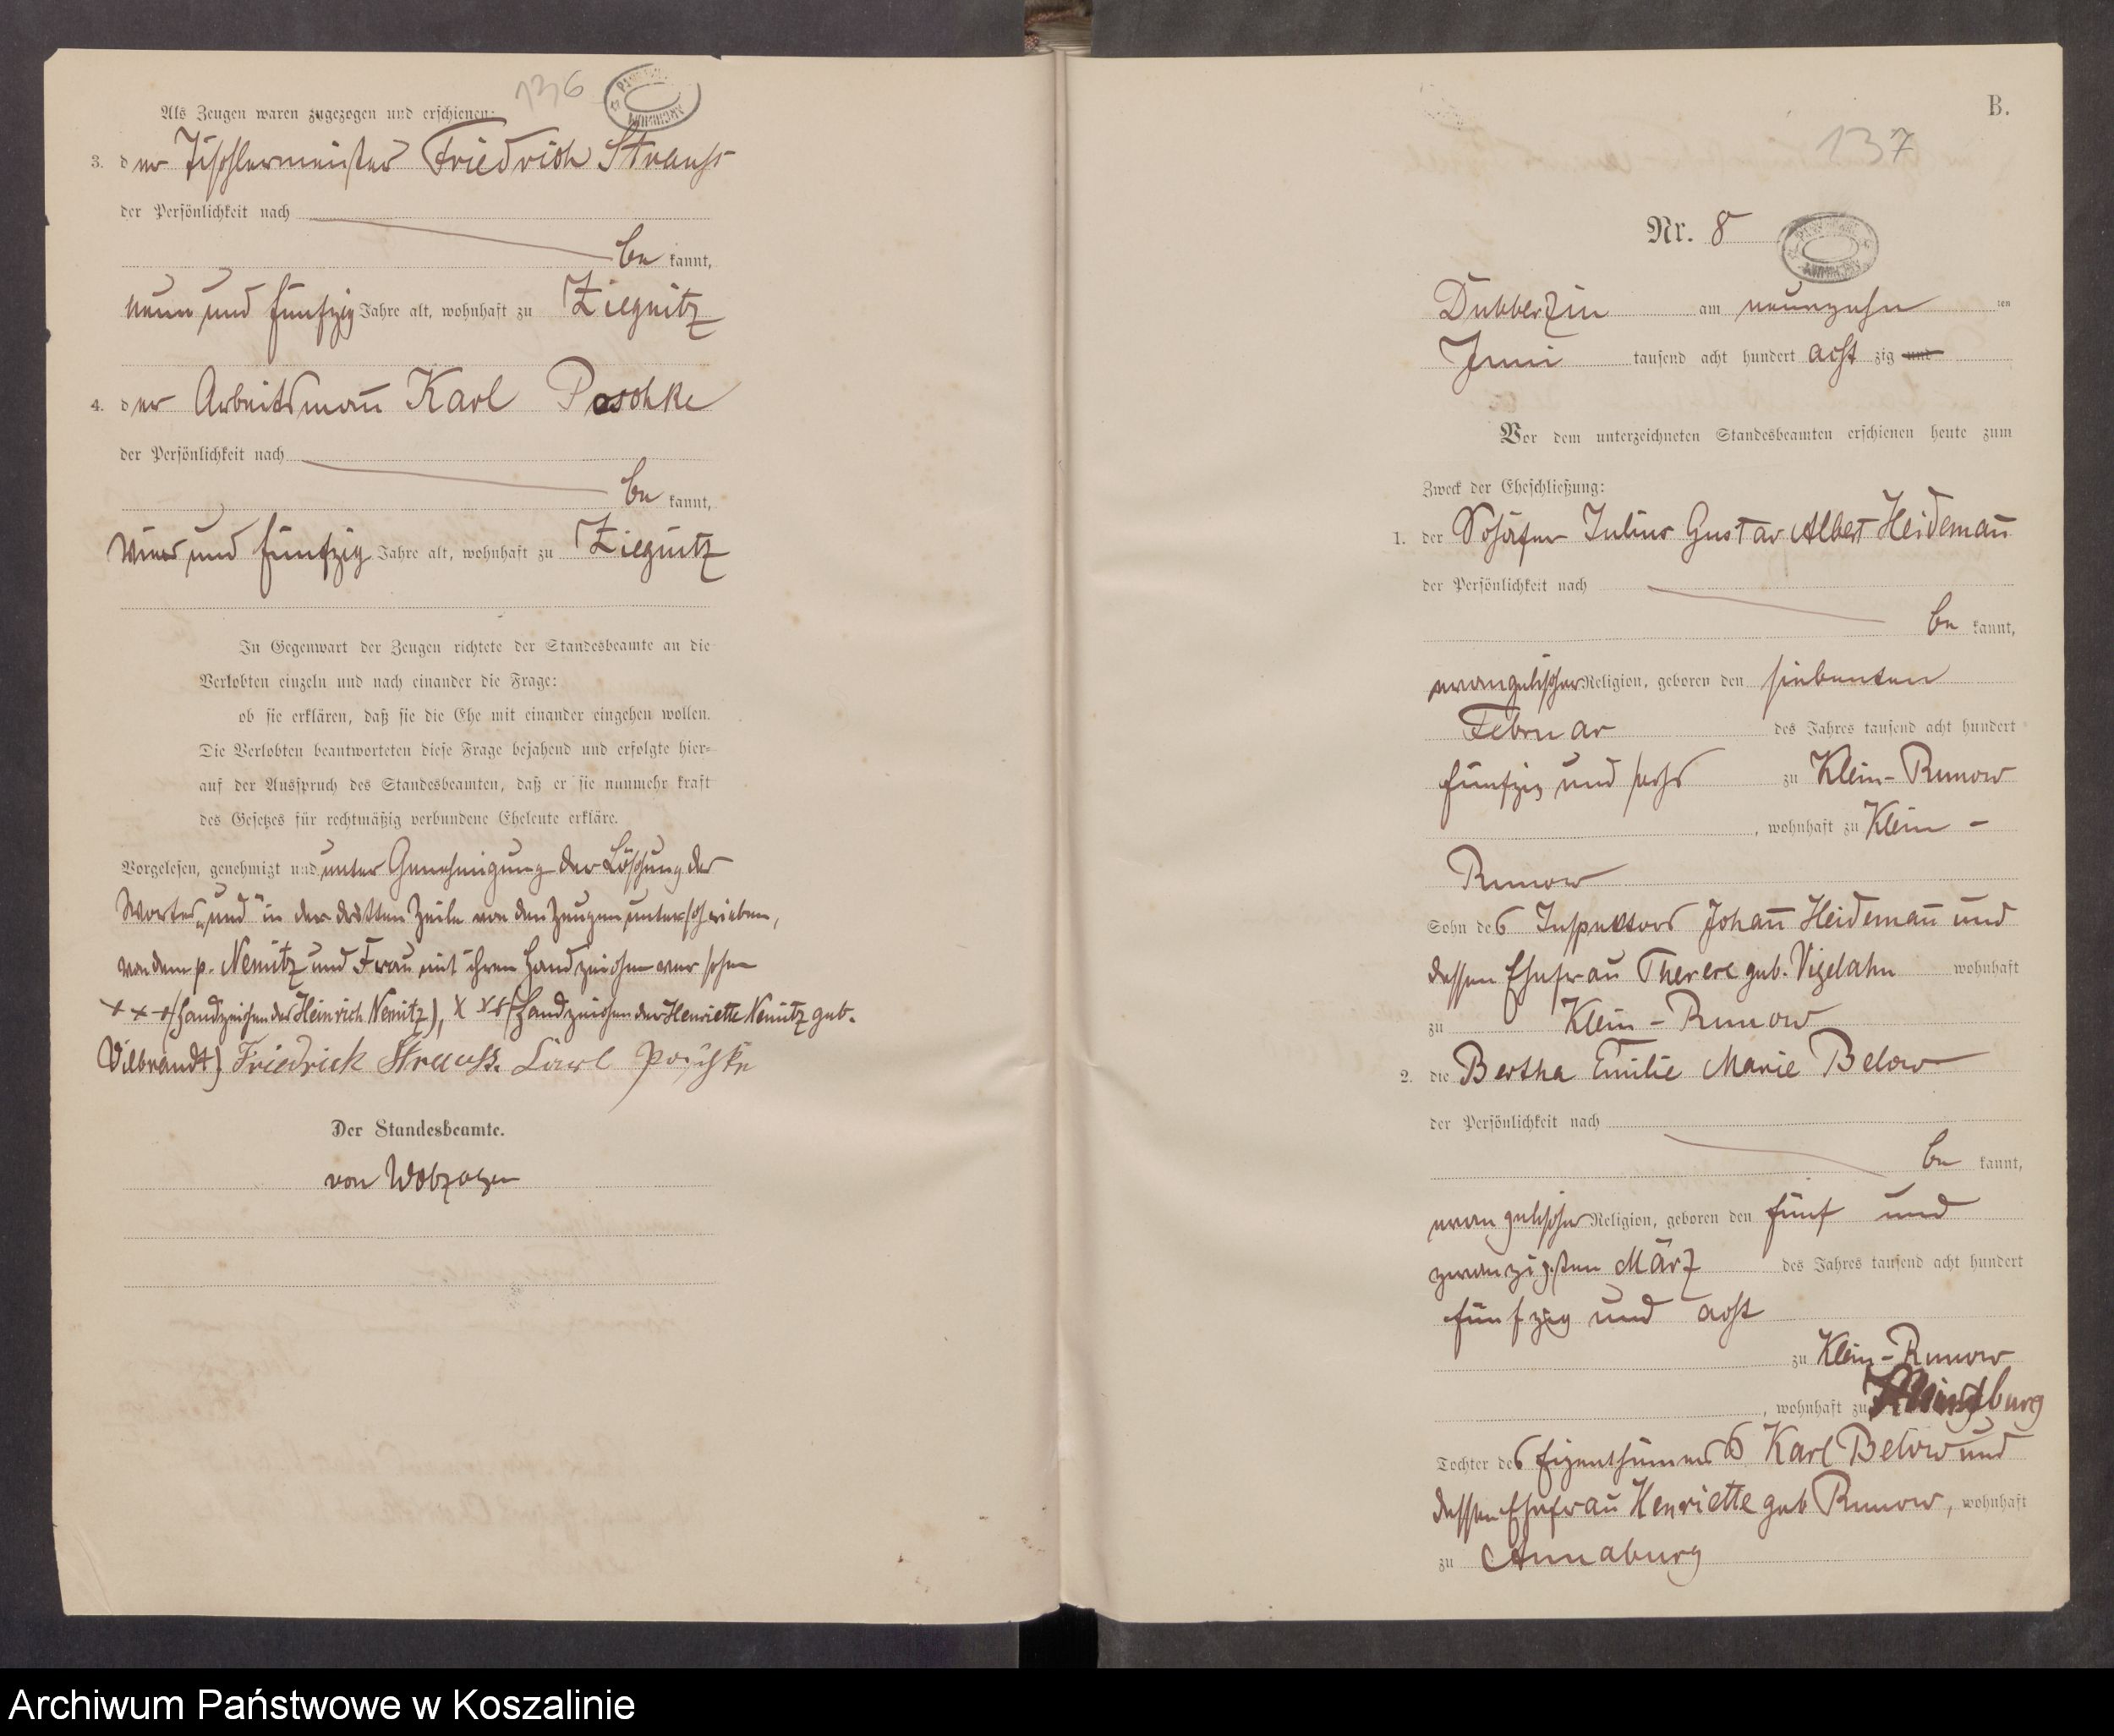 136
Als Zeugen waren zugezogen und erschienen:
3. der Tischlermeister Friedrich Strauss
der Persönlichkeit nach
be kannt,
neun und fünfzig Jahre alt, wohnhaft zu Ziegnitz
4. der Arbeitsmann Karl Poschke
der Persönlichkeit nach
be kannt,
vier und fünfzig Jahre alt, wohnhaft zu Ziegnitz
In Gegenwart der Zeugen richtete der Standesbeamte an die
Verlobten einzeln und nach einander die Frage:
ob sie erklären, daß sie die Ehe mit einander eingehen wollen.
Die Verlobten beantworteten diese Frage bejahend und erfolgte hier-
auf der Ausspruch des Standesbeamten, daß er sie nunmehr kraft
des Gesetzes für rechtmäßig verbundene Eheleute erkläre.
Vorgelesen, genehmigt und unter Genehmigung der Löschung des
Wortes „und" in der dritten Zeile von den Zeugen unterschrieben,
von dem p. Nemitz und Frau mit ihren Handzeichen versehen
+ + + (Handzeichen des Heinrich Nemitz), X X X (Handzeichen der Henriette Nemitz geb.
Vilbrandt) Friedrick Strauss. Carl Poschke
Der Standesbeamte.
von
B.
137
Nr. 8
Dubberzin am neunzehn ten
Juni tausend acht hundert acht zig und
Vor dem unterzeichneten Standesbeamten erschienen heute zum
Zweck der Eheschließung:
1. der Schäfer Julius Gustav Albert Heidemann
der Persönlichkeit nach
be kannt,
evangelischer Religion, geboren den siebenten
Februar des Jahres tausend acht hundert
fünfzig und sechs zu Klein-Runow
, wohnhaft zu Klein-
Runow
Sohn des Inspektors Johann Heidemann und
dessen Ehefrau Therese geb. Vigelahn wohnhaft
zu Klein-Runow
2. die Bertha Emilie Marie Below
der Persönlichkeit nach
be kannt,
evangelischer Religion, geboren den fünf und
zwanzigsten März des Jahres tausend acht hundert
fünfzig und acht
zu Klein-Runow
, wohnhaft zu
Tochter des Eigenthümers Karl Below und
dessen Ehefrau Henriette geb Runow, wohnhaft
zu Annaburg
Archiwum Państwowe w Koszalinie